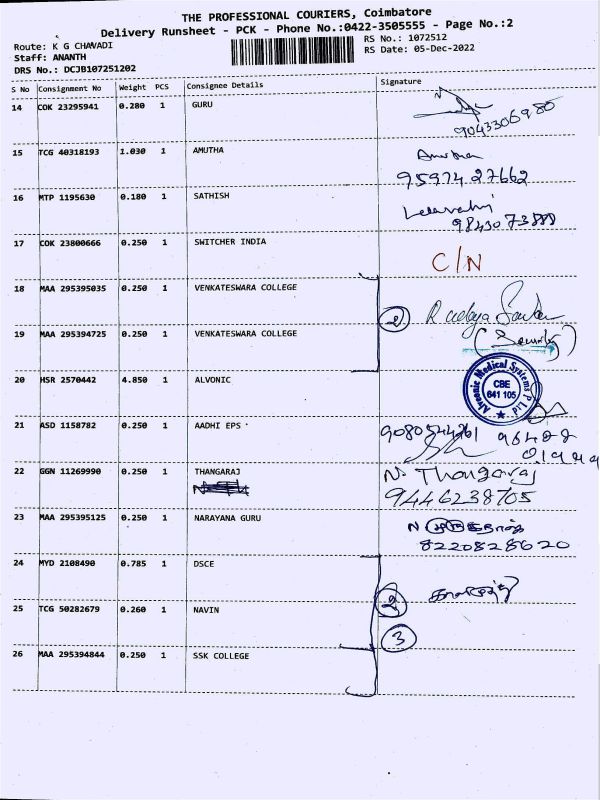 THE PROFESSIONAL COURIERS, Coimbatore
Delivery Runsheet - PCK - Phone No.:0422-3505555 - Page No.:2
Route: K G CHAVADI
RS No.: 1072512
Staff: ANANTH
RS Date: 05-Dec-2022
DRS No.: DCJB107251202
S No Consignment No Weight PCS Consignee Details Signature
14 COK 23295941 0.280 1 GURU
9043306980
15 TCG 40318193 1.030 1 AMUTHA Amutha
9597427662
16 MTP 1195630 0.180 1 SATHISH
9843073888
17 COK 23800666 0.250 1 SWITCHER INDIA
C/N
18 MAA 295395035 0.250 1 VENKATESWARA COLLEGE
2
19 MAA 295394725 0.250 1 VENKATESWARA COLLEGE (Security)
20 HSR 2570442 4.850 1 ALVONIC
Alvonic Medical Systems P Ltd
CBE
641 105
21 ASD 1158782 0.250 1 AADHI EPS
22 GGN 11269990 0.250 1 THANGARAJ N. Thangaraj
9446238705
23 MAA 295395125 0.250 1 NARAYANA GURU
8220828620
24 MYD 2108490 0.785 1 DSCE
2
25 TCG 50282679 0.260 1 NAVIN
3
26 MAA 295394844 0.250 1 SSK COLLEGE